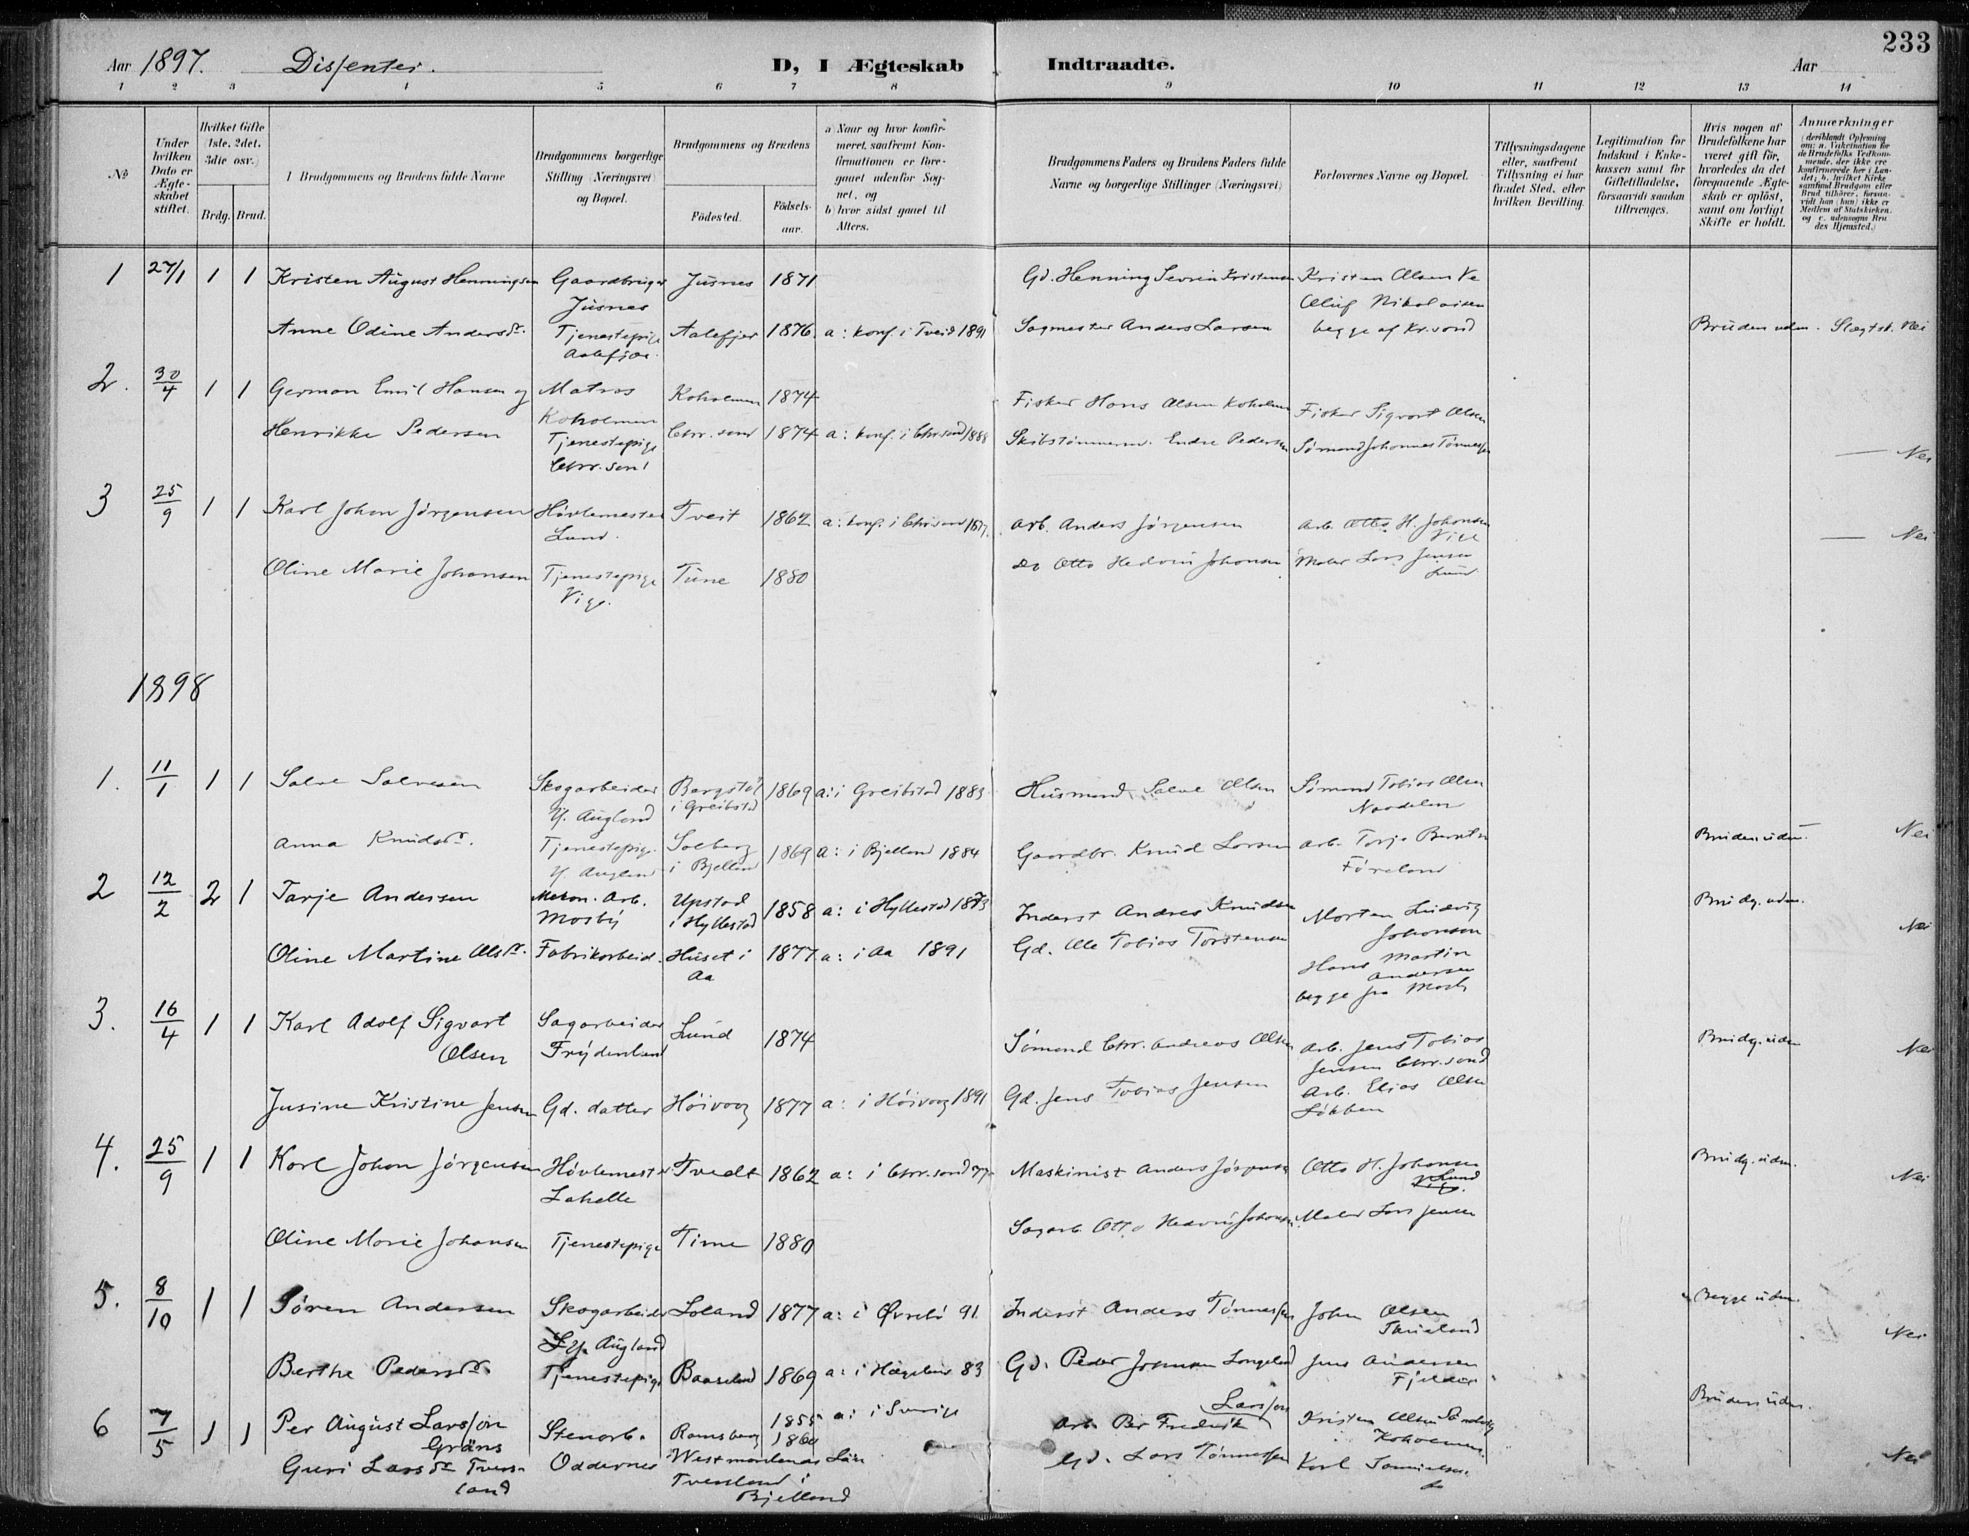 233
Aar 1897. Dissenter. D, I Ægteskab Indtraadte. Aar
1 2 3 4 5 6 7 8 9 10 11 12 13 14
No
Under hvilken Dato er Ægteskabet stiftet.
Hvilket Gifte (1ste, 2det, 3die osv.)
Brdg. Brud.
1 Brudgommens og Brudens fulde Navne
Brudgommens borgerlige Stilling (Næringsvei) og Bopæl.
Brudgommens og Brudens
Fødested. Fødselsaar.
a) Naar og hvor konfirmeret, saafremt Konfirmationen er foregaaet udenfor Sognet, og
b) hvor sidst gaaet til Alters.
Brudgommens Faders og Brudens Faders fulde Navne og borgerlige Stillinger (Næringsvei)
Forlovernes Navne og Bopæl.
Tillysningsdagene eller, saafremt Tillysning ei har fundet Sted, efter hvilken Bevilling.
Legitimation for Indskud i Enkekassen samt for Giftetilladelse, forsaavidt saadan tiltrænges.
Hvis nogen af Brudefolkene har været gift før, hvorledes da det foregaaende Ægteskab er opløst, samt om lovligt Skifte er holdt.
Anmærkninger
(deriblandt Oplysning om: a. Vakcination for de Brudefolks Vedkommende, der ikke ere konfirmerede her i Landet; b. hvilket Kirkesamfund Brudgom eller Brud tilhører, forsaavidt han (hun) ikke er Medlem af Statskirken, og c. udensogns Brudes Hjemsted.)
1 27/1 1 1 Kristen August Henningsen Gaardbruger Jusnes 1871 Gd. Henning Severin Kristensen Kristen Olsen Ve
Jusnes Oluf Nikolaisen
Anne Odine Andersdr. Tjenestepige Aalefjær 1876 a: konf. i Tveid 1891 Sagmester Anders Larsen begge af Kr.sand Bruden uden. Slægtsk. Nei
Aalefjær.
2. 30/4 1 1 German Emil Hansen og Matros Koholmen 1874 Fisker Hans Olsen Koholmen Fisker Sigvart Olsen
Koholmen
Henrikke Pedersen Tjenestepige Chr.sand 1874 a: konf. i Chr.sand 1888 Skibstømmerm. Endre Pedersen Sømand Johannes Tønnessen — Nei
Chr.sand
3 25/9 1 1 Karl Johan Jørgensen Høvlemester Tveit 1862 a: konf. i Chr.sand 1877. Arb. Anders Jørgensen Arb. Otto H. Johansen
Lund. Vige — Nei
Oline Marie Johansen Tjenestepige Tune 1880 do Otto Hedvin Johansen Maler Lars Jensen
Vige. Lund
1898
1. 11/1 1 1 Salve Salvesen Skogarbeider Bergstøl 1869 a: i Greibstad 1883 Husmand Salve Olsen Sømand Tobias Olsen
Y. Augland i Greibstad Naodelen
Anna Knudsdr. Tjenestepige. Solberg 1869 a: i Bjelland 1884 Gaardbr. Knud Larsen Arb. Torje Berntsen Bruden uden Nei
Y. Augland i Bjelland Føreland
2 12/2 2 1 Tarje Andersen Arb. Upstad 1858 a: i Hyllestad 1873 Inderst Andres Knudsen Morten Ludvig Brudg. uden.
Mosby i Hyllestad Johansen
Oline Martine Olsdr. Fabrikarbeid. Huset i 1877 a: i Aa 1891 Gd. Ole Tobias Torstensen Hans Martin Nei
Aa Andersen
begge fra Mosby
3. 16/4 1 1 Karl Adolf Sigvart Sagarbeider Lund 1874 Sømand Chr. Andreas Olsen Arb. Jens Tobias Brudg. uden Nei
Olsen Frydenlund Jensen Chr.sand
Jusine Kristine Jensen Gd. datter Høivaag 1877 a: i Høivaag 1891 Gd. Jens Tobias Jensen Arb. Elias Olsen
Løkken
4. 25/9 1 1 Karl Johan Jørgensen Høvlemester Tvedt 1862 a: i Chr.sand 77 Maskinist Anders Jørgensen Otto H. Johansen Brudg. uden. Nei
Lahelle Lund
Oline Marie Johansen Tjenestepige Time 1880 Sagarb. Otto Hedvin Johansen. Maler Lars Jensen
5. 8/10 1 1 Søren Andersen Skogarbeider Loland 1877 a: i Øvrebø 91 Inderst Anders Tønnessen John Olsen Begge uden.
Y. Augland Nei
Berthe Pedersdr. Tjenestepige Baaseland 1869 a: i Hægeland 83 Gd. Peder Josensen Jens Andersen
6 7/5 1 1 Per August Larsson Stenarb. Ramsberg 1855 a: i Sverige Arb. Per Fredrik Larsson Kristen Olsen Bruden uden.
Gräns 1860 Koholmen
Guri Larsdr. Tvers- Oddernes Westmanlands Län Gd. Lars Tønnessen Karl Nei
land Tversland i do
Bjelland